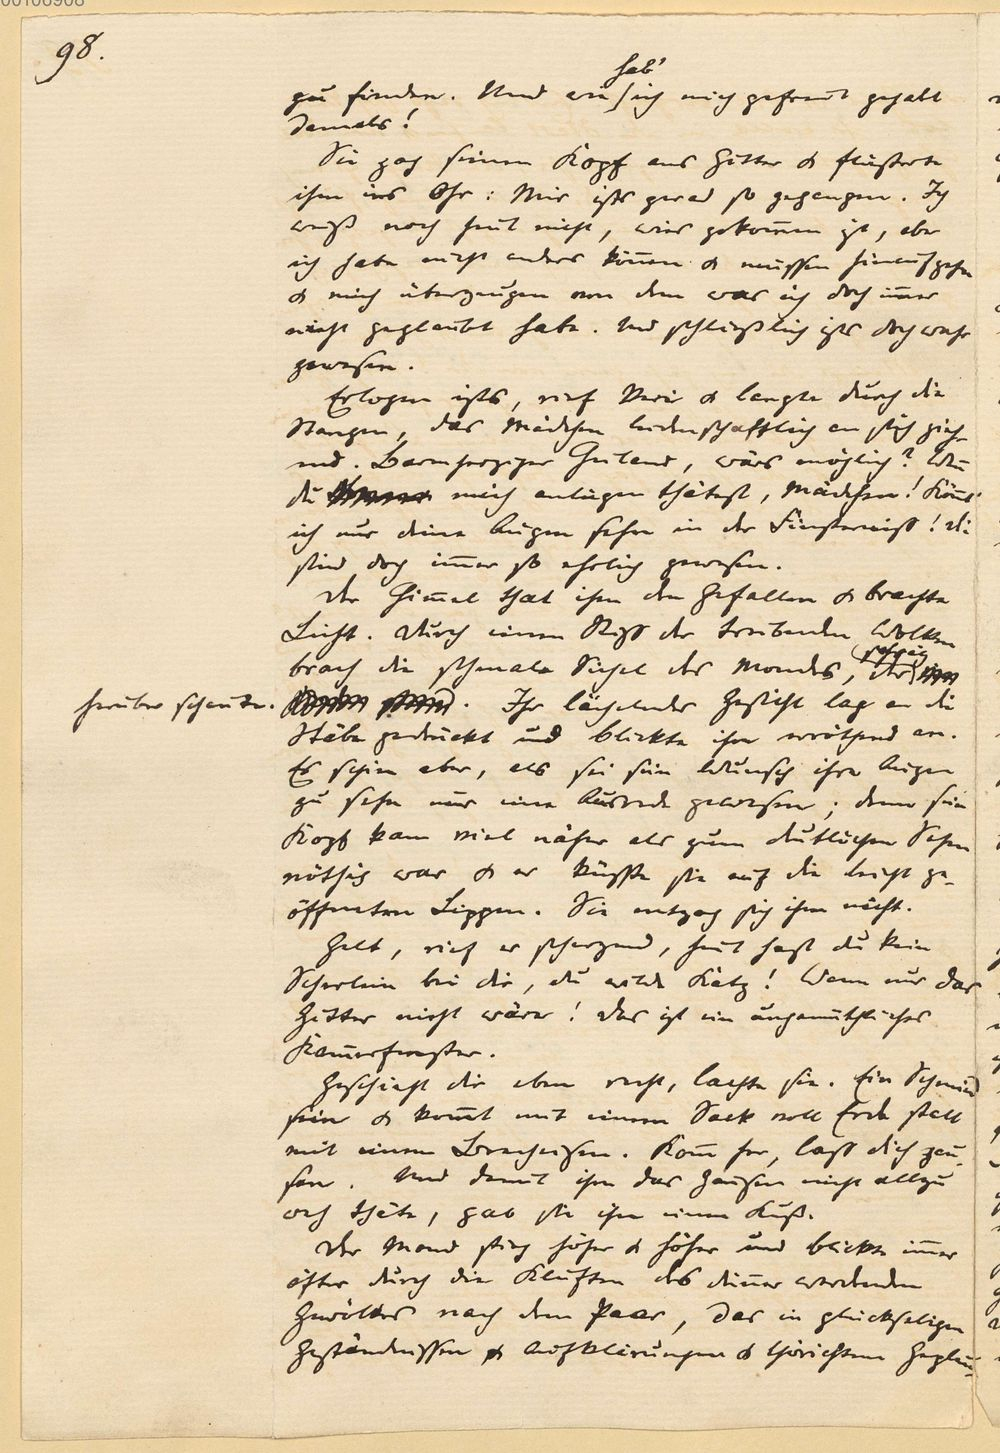 98.
hab'
zu finden. Und wie ich mich gefreut gehabt
damals!
Sie zog seinen Kopf ans Gitter & flüsterte
ihm ins Ohr: Mir ists grad so gegangen. Ich
weiß noch heut nicht, wies gekom̅en ist, aber
ich habe nicht anders kön̅en & müssen hinaufgehn
& mich überzeugen von dem was ich doch im̅er
nicht geglaubt habe. Und schließlich ists doch wahr
gewesen.
Erlogen ists, rief & langte durch die
Stangen, das Mädchen leidenschaftlich an sich zieh-
end. Barmherziger Heiland, wärs möglich? Wen̅
du mich anlügen thätest, Mädchen! Kön̅t
ich nur deine Augen sehn in der Finsterniß! Die
sind doch im̅er so ehrlich gewesen.
Der Him̅el that ihm den Gefallen & brachte
Licht. Durch einen Riß der treibenden Wolken
brach die schmale Sichel des Mondes, der
herüber schaute.
Ihr lächelndes Gesicht lag an die
Stäbe gedrückt und blickte ihn erröthend an.
Es schien aber, als sei sein Wunsch ihre Augen
zu sehn nur eine Ausrede gewesen; denn sein
Kopf kam viel näher als zum deutlichen Sehen
nöthig war & er küßte sie auf die leicht ge-
öffneten Lippen. Sie entzog sich ihm nicht.
Gelt, rief er scherzend, heut hast du kein
Scherlein bei dir, du wilde Katz! Wenn nur das
Gitter nicht wäre! Das ist ein ungemüthliches
Kam̅erfenster.
Geschieht dir eben recht, lachte sie. Ein Schmied
sein & kom̅t mit einem Sack voll Erde statt
mit einem Brecheisen. Kom̅ her, laß dich zau-
sen. Und damit ihm das Zausen nicht allzu
weh thäte, gab sie ihm einen Kuß.
Der Mond stieg höher & höher und blickte im̅er
öfter durch die Kluften des dün̅er werdenden
Gewölkes nach dem Paar, das in glückseligen
Geständnissen & Aufklärungen & thörichtem Geplau-